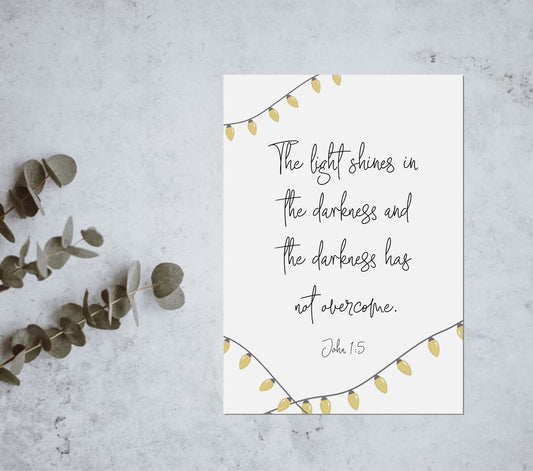 The light shines in
the darkness and
the darkness has
not overcome.
John 1:5